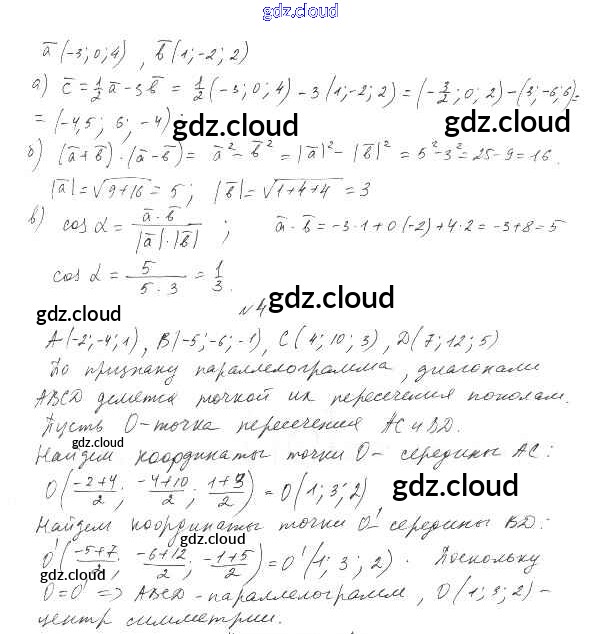 gdz.cloud
ā (-3; 0; 4) , b̄ (1; -2; 2)
а) c̄ = 1/2 ā - 3b̄ = 1/2 (-3; 0; 4) - 3 (1; -2; 2) = (-3/2; 0; 2) - (3; -6; 6) =
= (-4,5; 6; -4)
gdz.cloud
gdz.cloud
б) (ā + b̄) · (ā - b̄) = ā² - b̄² = |ā|² - |b̄|² = 5² - 3² = 25 - 9 = 16.
gdz.cloud
|ā| = √9+16 = 5; |b̄| = √1+4+4 = 3
в) cos α = ā · b̄ / |ā| · |b̄| ; ā · b̄ = -3 · 1 + 0 (-2) + 4 · 2 = -3 + 8 = 5
cos α = 5 / 5 · 3 = 1/3.
gdz.cloud
gdz.cloud
№ 4
A (-2; -4; 1), B (-5; -6; -1), C (4; 10; 3), D (7; 12; 5)
По признаку параллелограмма, диагонали
ABCD делятся точкой их пересечения пополам.
Пусть O - точка пересечения AC и BD.
gdz.cloud
Найдем координаты точки O - середины AC:
O (-2+4/2; -4+10/2; 1+3/2) = O (1; 3; 2)
gdz.cloud
Найдем координаты точки O' середины BD:
O' (-5+7/2; -6+12/2; -1+5/2) = O' (1; 3; 2). Поскольку
gdz.cloud
O = O' => ABCD - параллелограмм, O (1; 3; 2) -
центр симметрии.
gdz.cloud